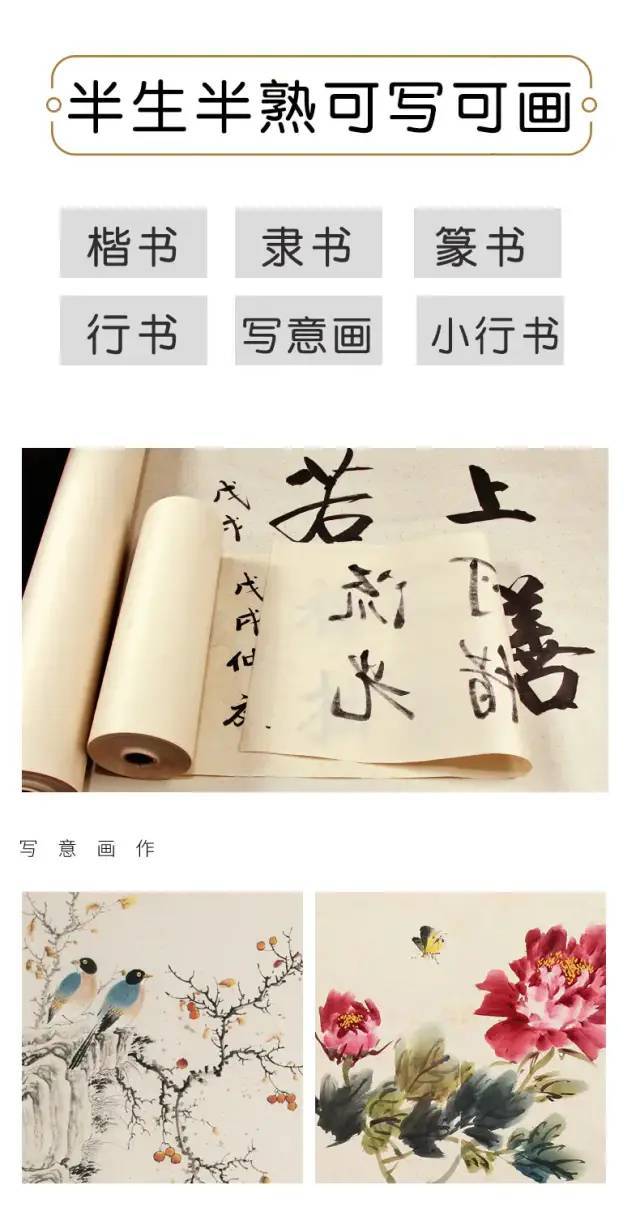 半生半熟可写可画
楷书 隶书 篆书
行书 写意画 小行书
上善
若
戊戌仲
写意画作